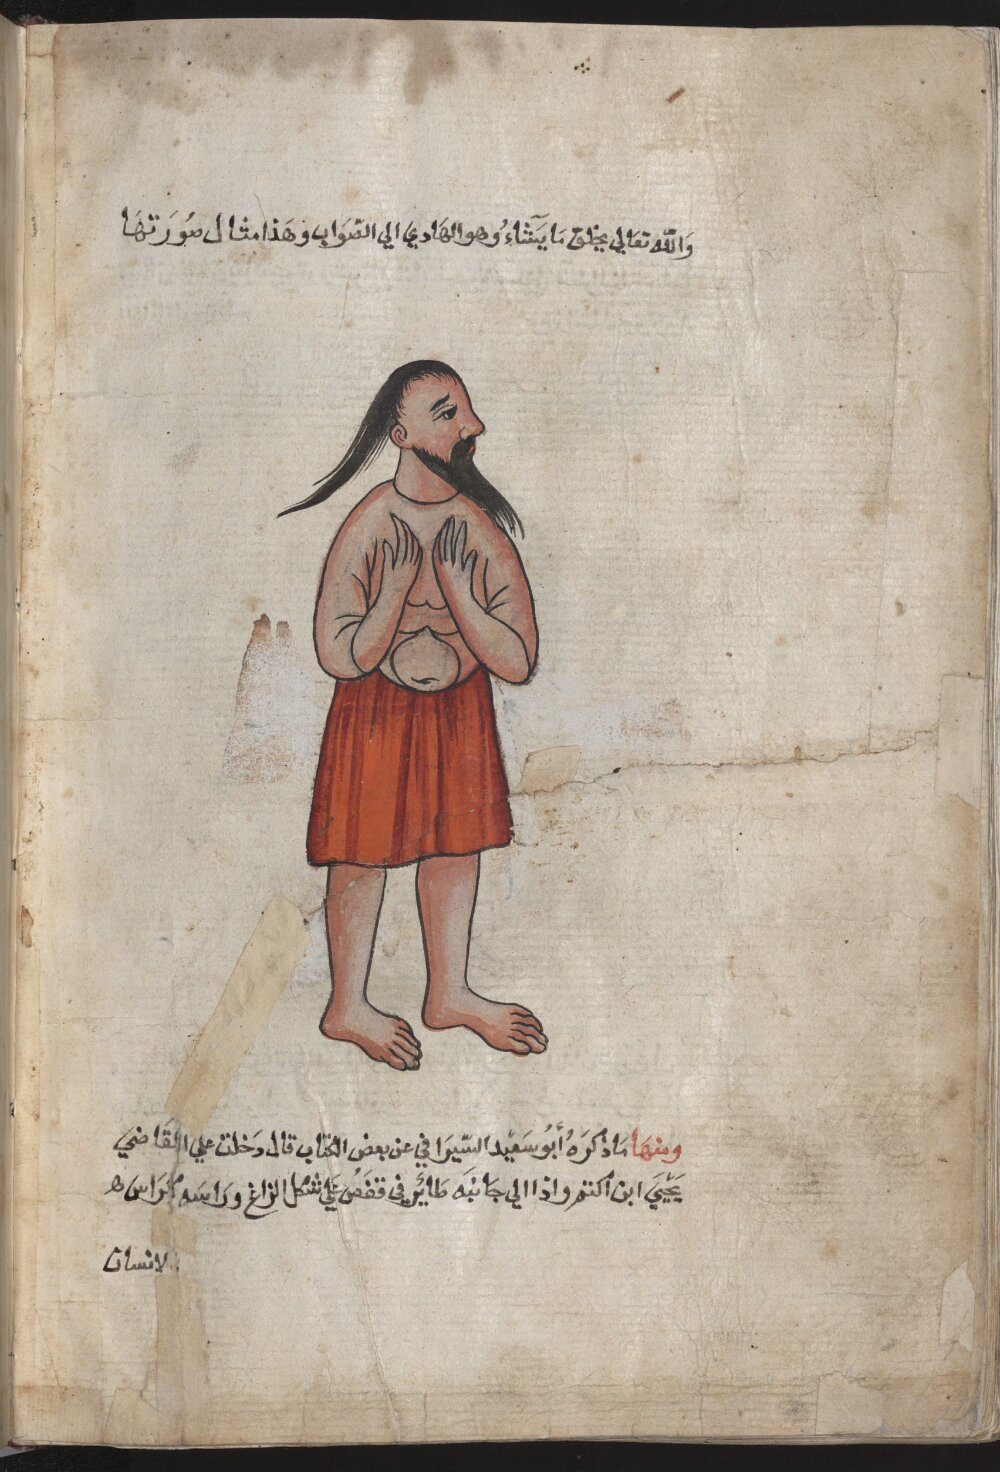 وَاللّه تعالي يخلق مَا يَشَآءُ وهو الهَادي الي الصّوَاب وهَذا مثال صُورَتهَا
ومنهَا مَا ذكرَهُ أبُو سَعيْد السّيرَافي عن بعض الكتاب قال دَخلت علي القَاضيَ
يَحْيَي ابن اكتم واذا الي جَانبَه طَائر في قفصُ عَلَي شكل الزاغ ورَاسَه كرَاس
الانسان